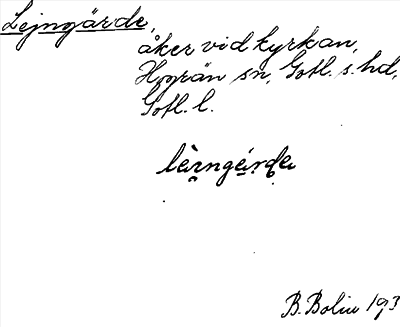 Lejngärde,
åker vid kyrkan,
Hogrän sn, Gotl. s. hd,
Gotl. l.
lèrngérde
B. Bolin 193